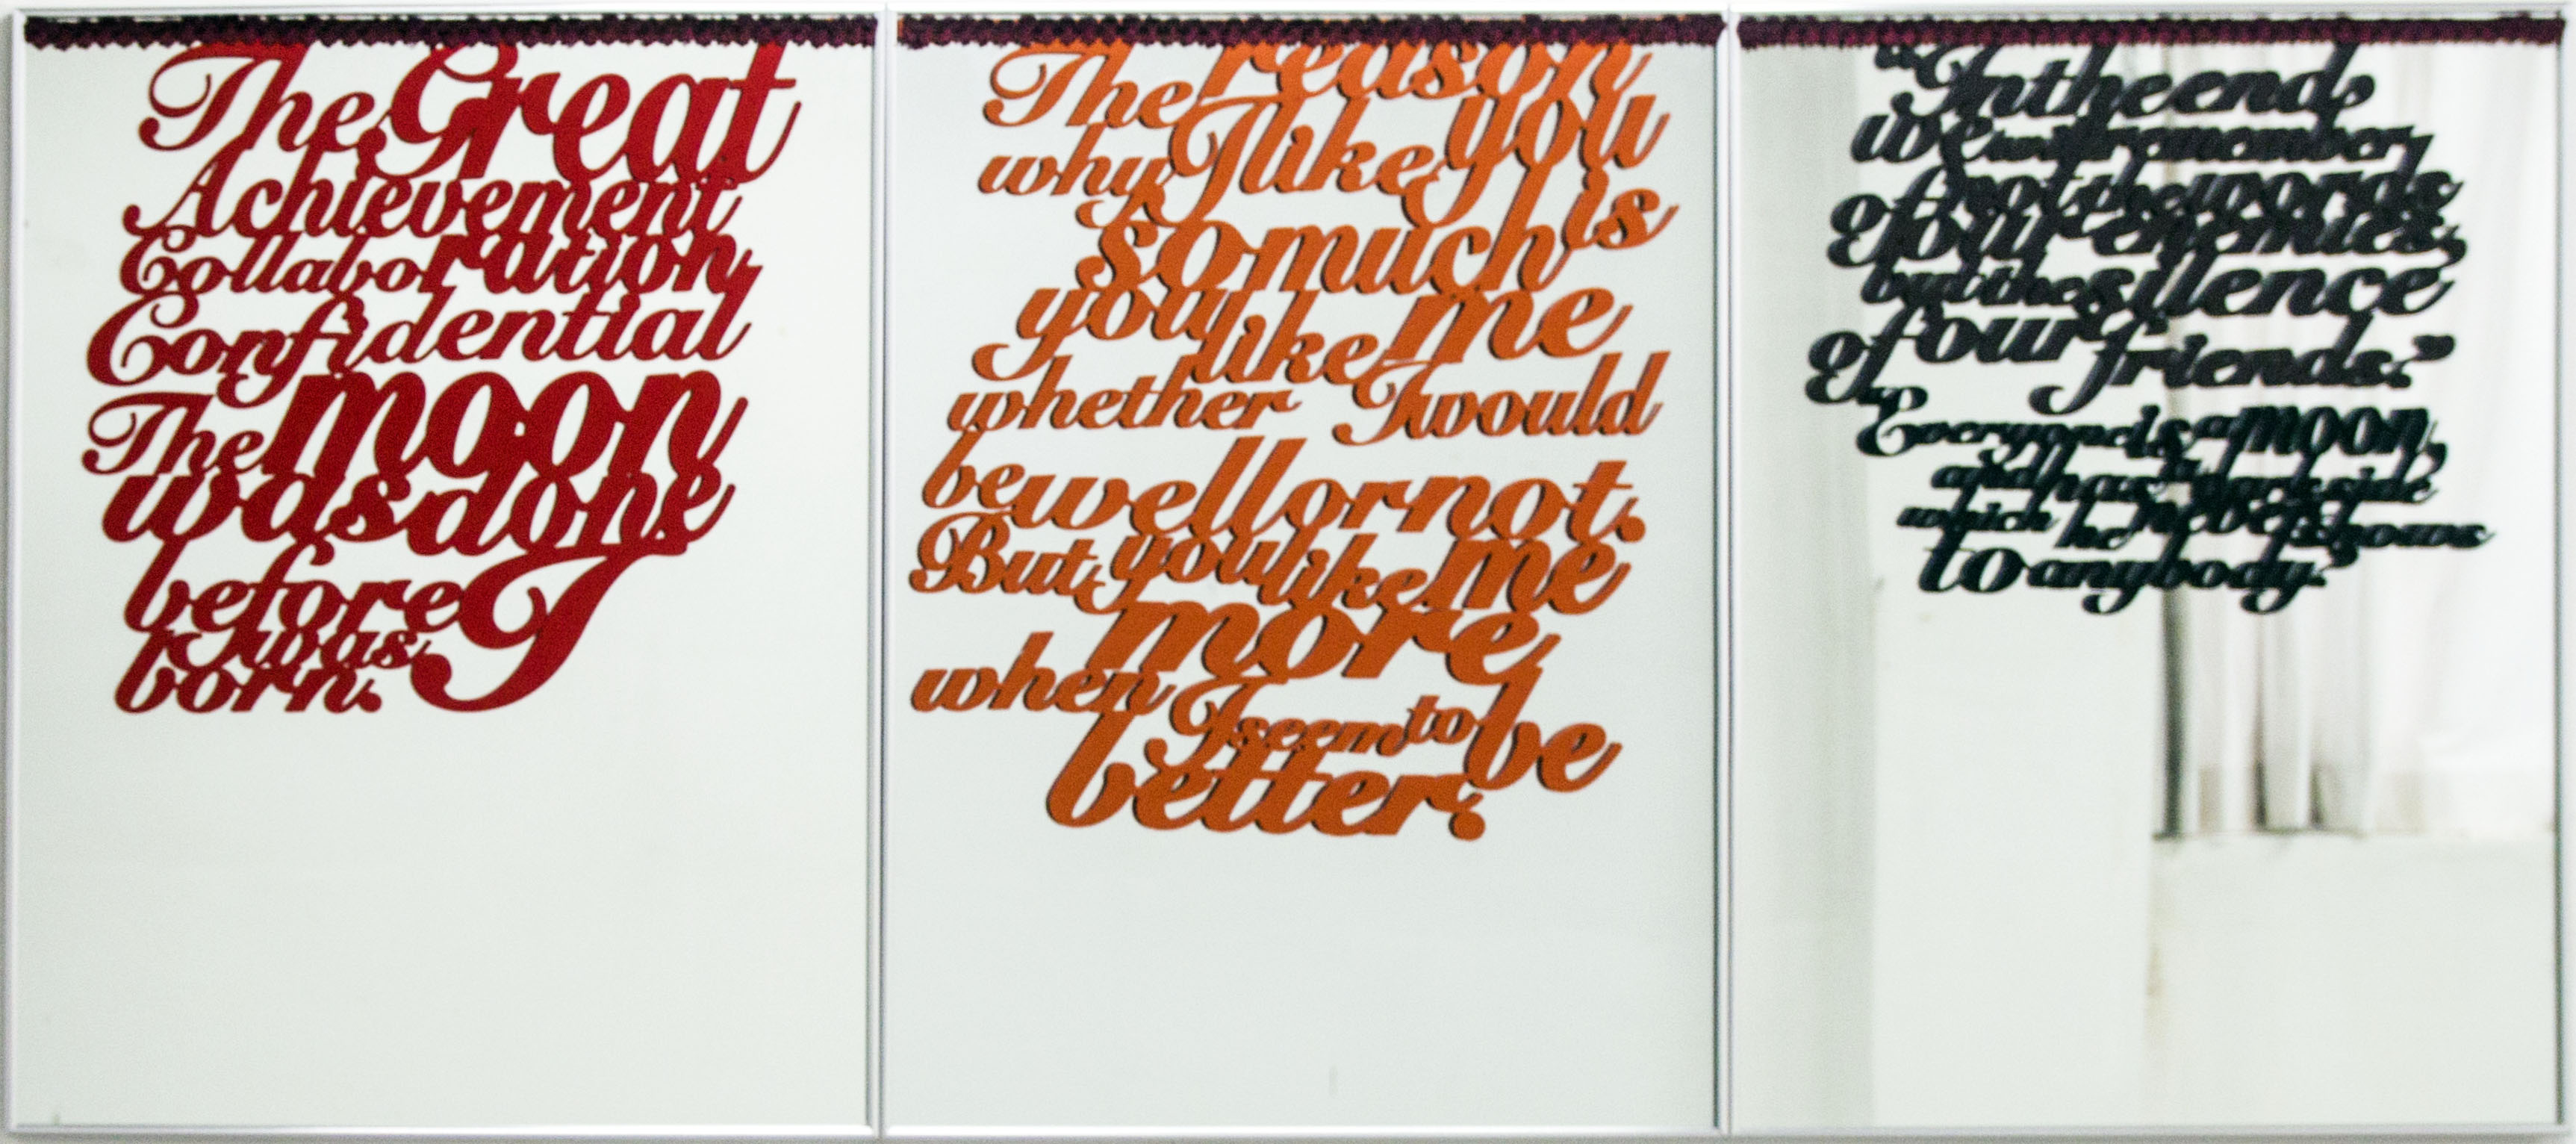 The Great
Achievement
Collaboration,
Confidential
The moon
was done
before I
was
born.
The reason
why I like you
is
so much
you like me
whether I would
be well or not.
But, you like me
more
when I seem to be
better.
“In the end,
we will remember,
not the words
of our enemies,
but the silence
of our friends.”
Everyone is a moon,
and has dark side
which he never shows
to anybody.”